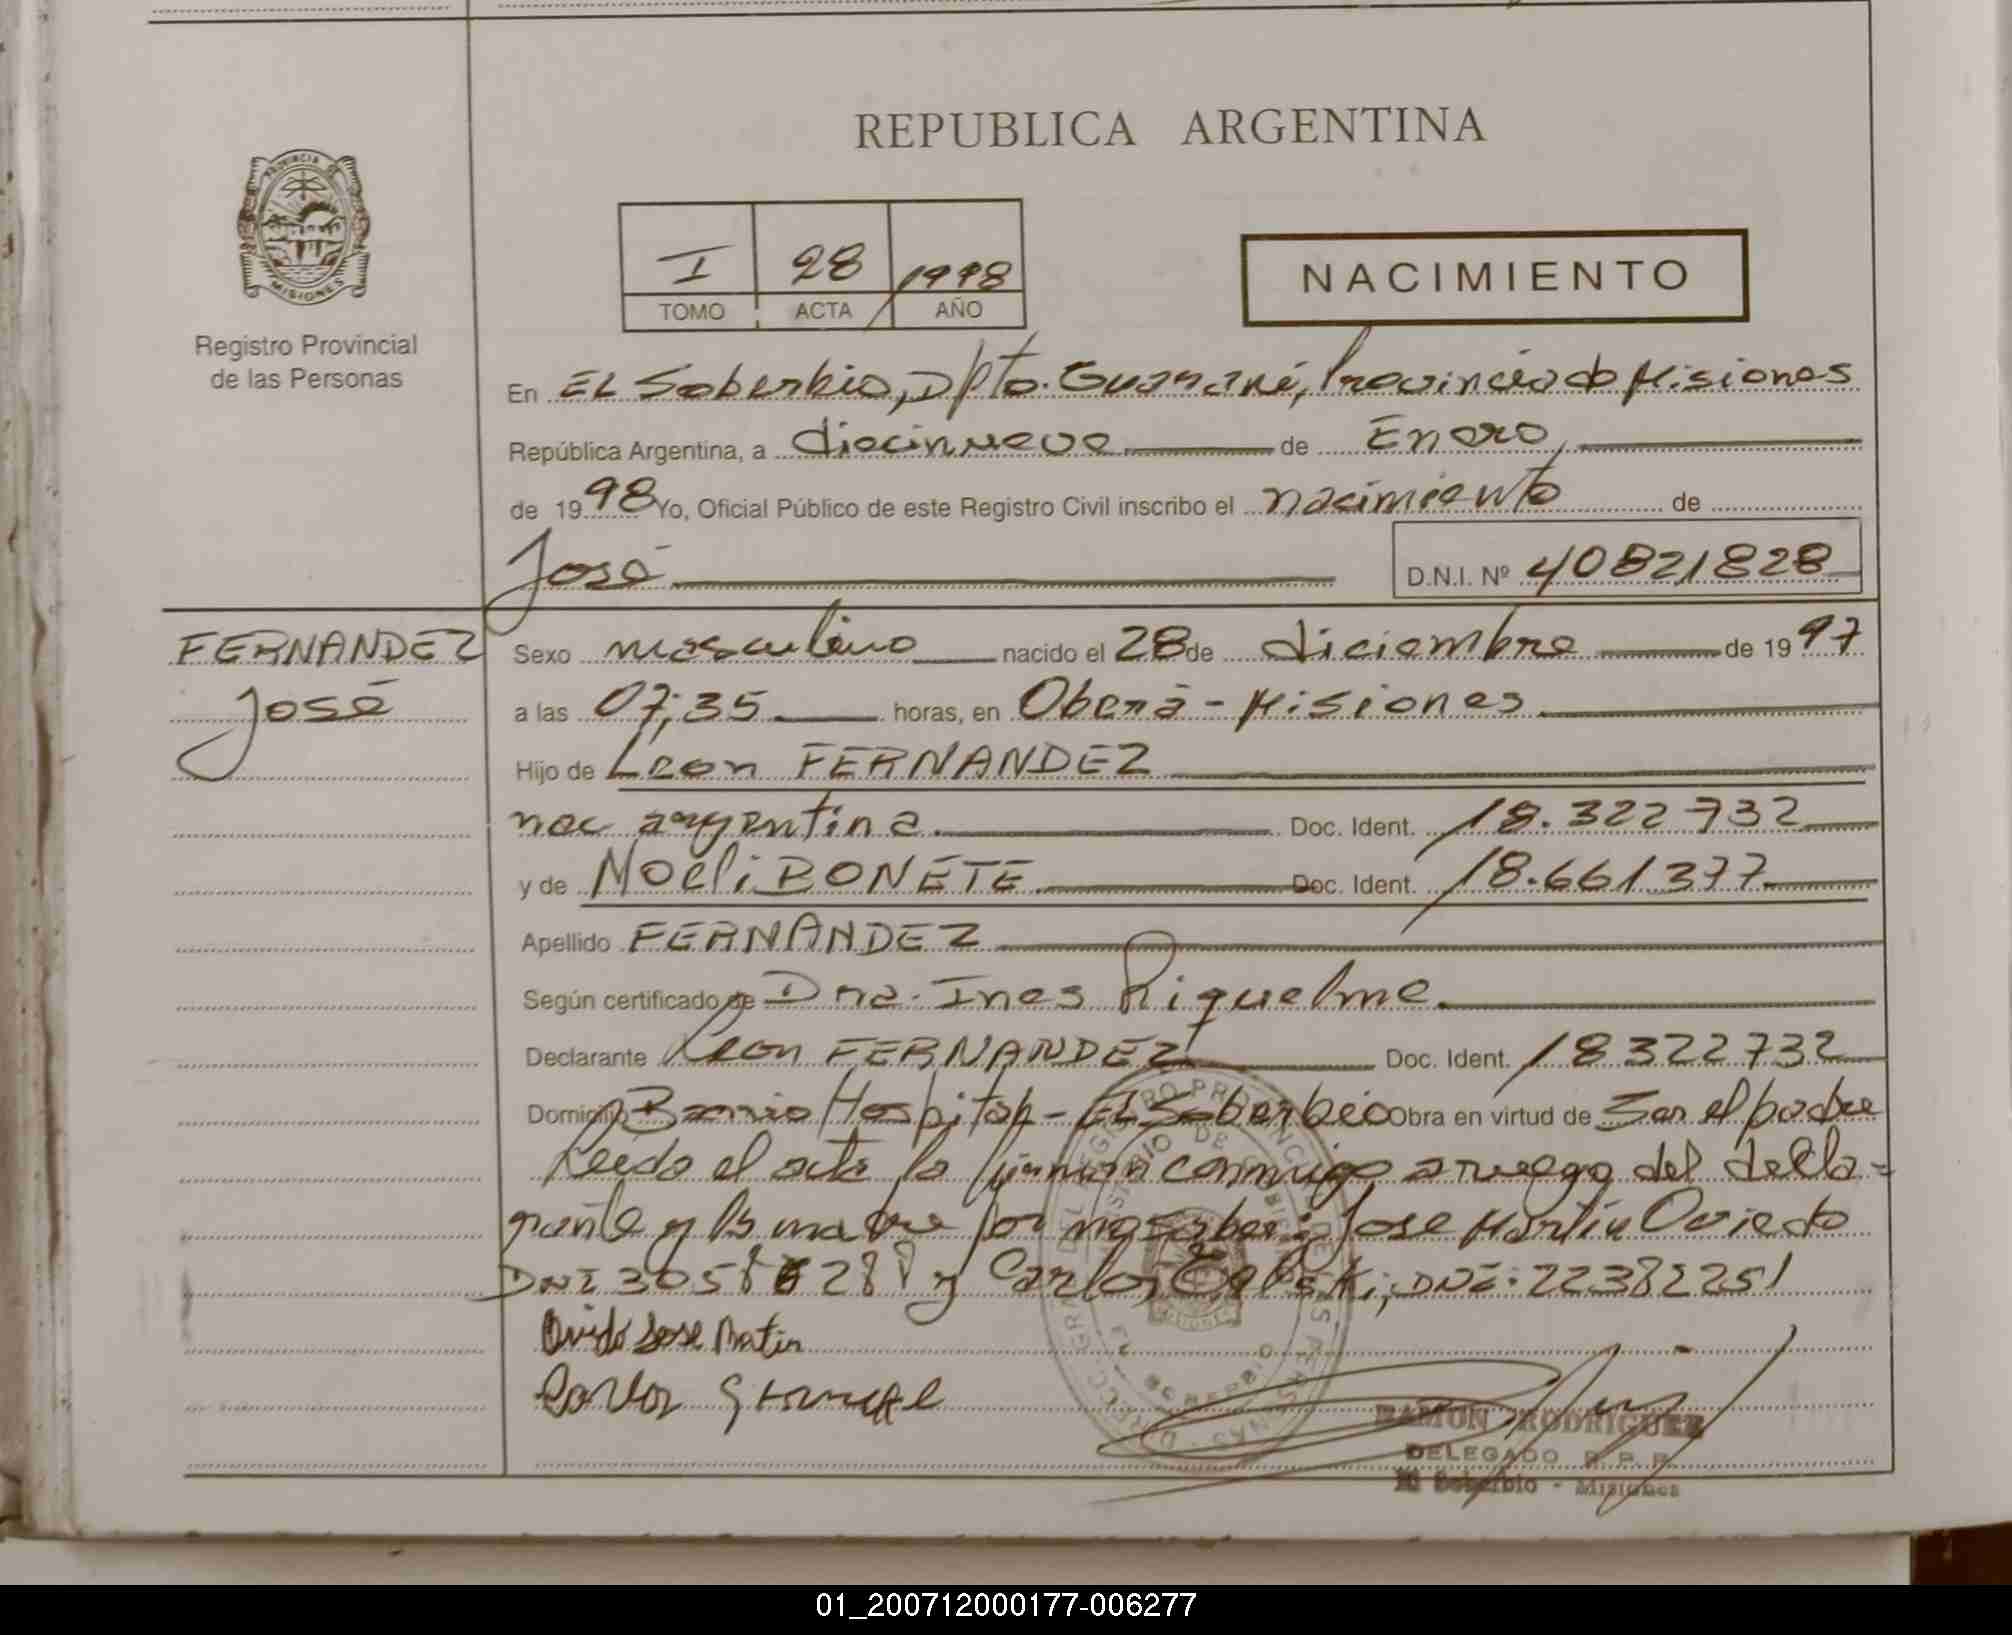 REPUBLICA ARGENTINA
PROVINCIA DE
MISIONES
Registro Provincial
de las Personas
I 28 1998
TOMO ACTA AÑO
NACIMIENTO
En EL Soberbio, Dpto. Guaraní, Provincia de Misiones
República Argentina, a diecinueve de Enero,
de 1998 Yo, Oficial Público de este Registro Civil inscribo el nacimiento de
José D.N.I. Nº 40821828
FERNANDEZ
José
Sexo masculino nacido el 28 de diciembre de 1997
a las 07;35 horas, en Oberá - Misiones
Hijo de Leon FERNANDEZ
nac argentina. Doc. Ident. 18.322732
y de Noeli BONETE Doc. Ident. 18.661377
Apellido FERNANDEZ
Según certificado de Dra. Ines Riquelme
Declarante Leon FERNANDEZ Doc. Ident. 18322732
Domicilio Barrio Hospital - EL Soberbio Obra en virtud de Ser el padre
Leida el acta la firman conmigo a ruego del decla=
rante y la madre por no saber: Jose Martin Oviedo
DNI y Carlos DNI: 22382251
Ovido Jose Matin
Carlos
RAMON RODRIGUEZ
DELEGADO R. P. P.
El Soberbio - Misiones
01_200712000177-006277